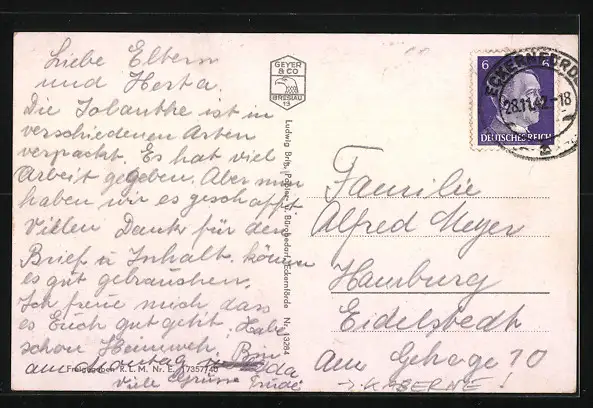 Liebe Eltern
und Herta.
Die Iolanthe ist in
verschiedenen Arten
verpackt. Es hat viel
Arbeit gegeben. Aber nun
haben wir es geschafft.
Vielen Dank für den
Brief u Inhalt. können
es gut gebrauchen.
Ich freue mich dass
es Euch gut geht. Habe
schon Heimweh. Bin
am Montag da
viele Grüsse
Freigegeben R.L.M. Nr. E. 17357/40
GEYER
& CO
BRESLAU
13
Eckernförde Nr. 13284
6 6
DEUTSCHES REICH
ECKERNFÖRDE
28.11.42-18
Familie
Alfred Meyer
Hamburg
Eidelstedt
Am Gehege 70
→ KASERNE!